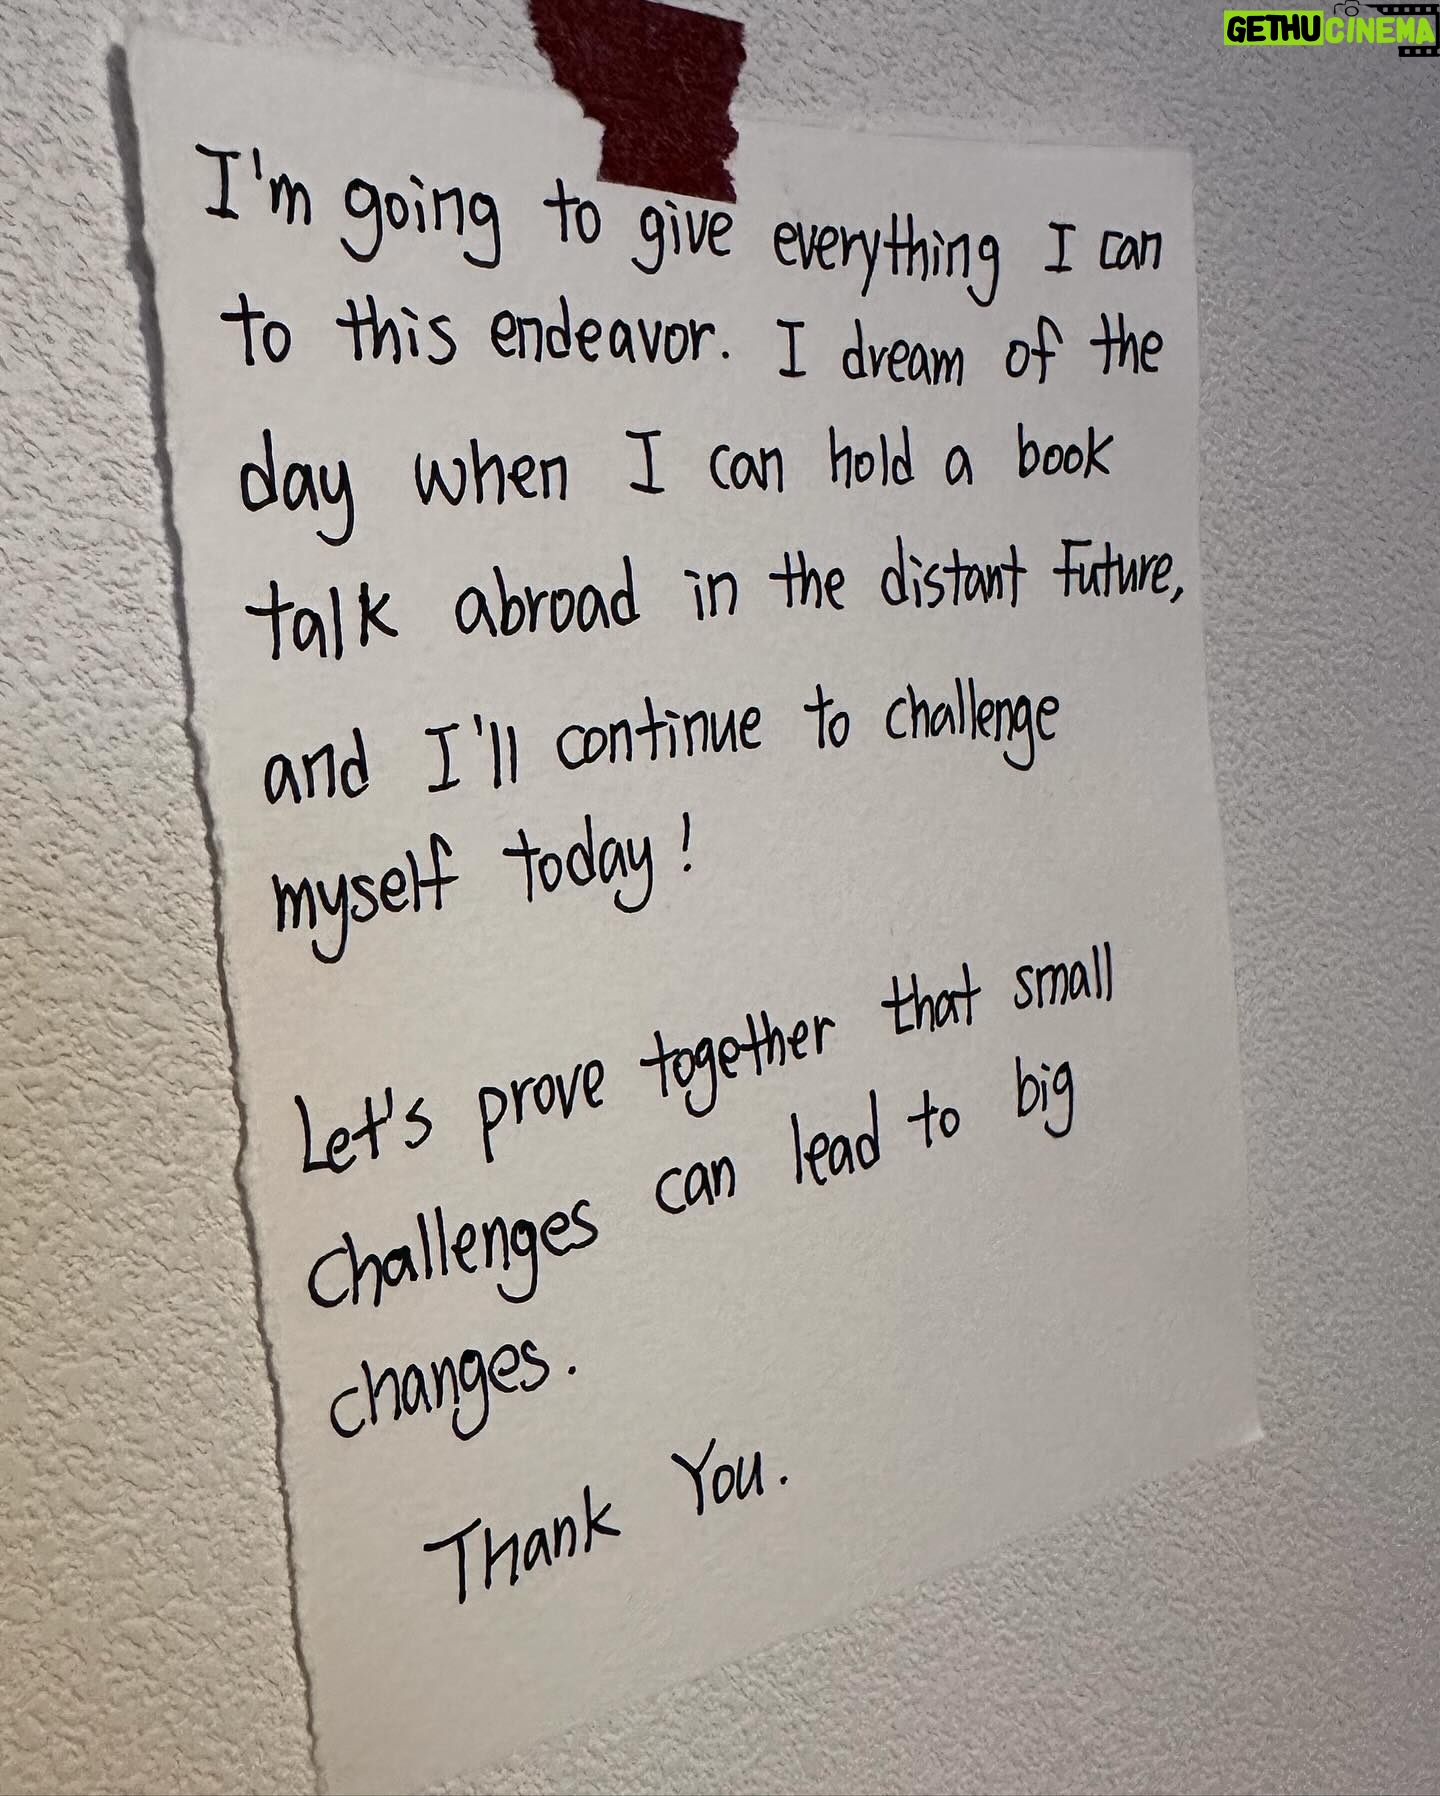 GETHUCINEMA
I'm going to give everything I can
to this endeavor. I dream of the
day when I can hold a book
talk abroad in the distant future,
and I'll continue to challenge
myself today!
Let's prove together that small
challenges can lead to big
changes.
Thank You.